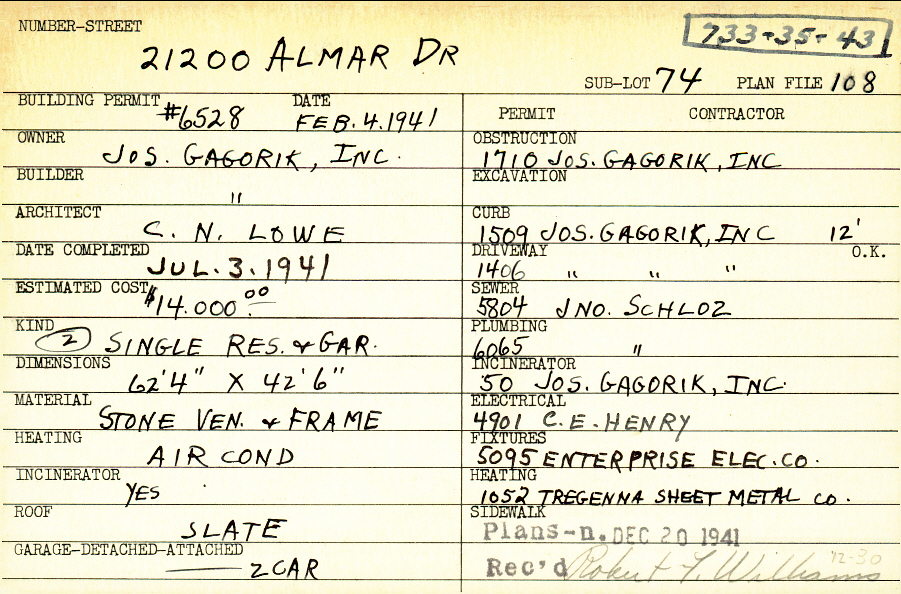 NUMBER-STREET
21200 ALMAR DR
733-35-43
SUB-LOT 74 PLAN FILE 108
BUILDING PERMIT #6528 DATE FEB. 4. 1941
OWNER JOS. GAGORIK, INC.
BUILDER "
ARCHITECT C. N. LOWE
DATE COMPLETED JUL. 3. 1941
ESTIMATED COST $14.000 00
KIND 2 SINGLE RES. & GAR.
DIMENSIONS 62'4" X 42'6"
MATERIAL STONE VEN. & FRAME
HEATING AIR COND
INCINERATOR YES
ROOF SLATE
GARAGE-DETACHED-ATTACHED 2 CAR
PERMIT CONTRACTOR
OBSTRUCTION
1710 JOS. GAGORIK, INC
EXCAVATION
CURB
1509 JOS. GAGORIK, INC 12'
DRIVEWAY O.K.
1406 " " "
SEWER
5804 JNO. SCHLOZ
PLUMBING
6065 "
INCINERATOR
50 JOS. GAGORIK, INC.
ELECTRICAL
4901 C. E. HENRY
FIXTURES
5095 ENTERPRISE ELEC. CO.
HEATING
1052 TREGENNA SHEET METAL CO.
SIDEWALK
Plans-n. DEC 20 1941
Rec'd Robert F. Williams 12-30